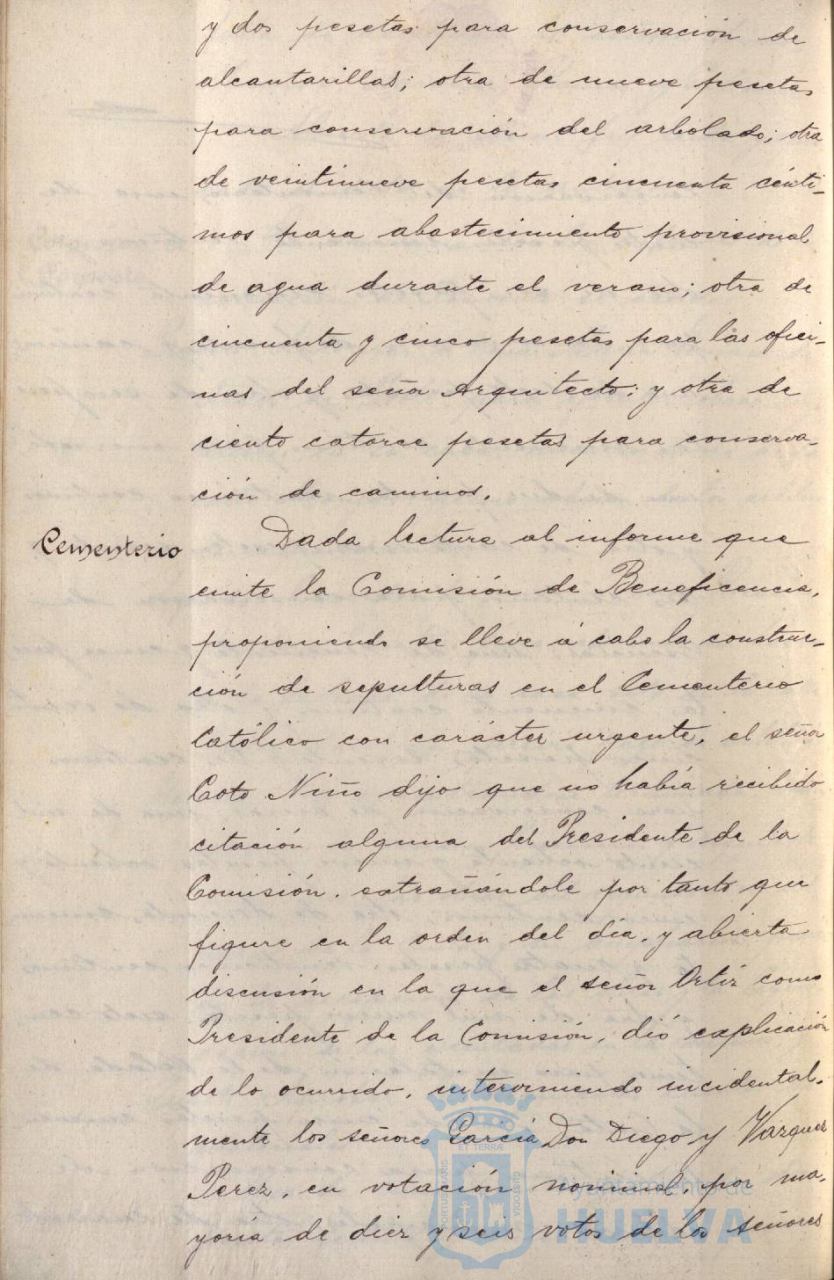 y dos pesetas para conservación de
alcantarillas; otra de nueve pesetas
para conservación del arbolado; otra
de veintinueve pesetas cincuenta cénti-
mos para abastecimiento provisional
de agua durante el verano; otra de
cincuenta y cinco pesetas para las ofici-
nas del señor Arquitecto; y otra de
ciento catorce pesetas para conserva-
ción de caminos.
Cementerio
Dada lectura al informe que
emite la Comisión de Beneficencia,
proponiendo se lleve á cabo la construc-
ción de sepulturas en el Cementerio
Católico con carácter urgente, el señor
Coto Niño dijo que no había recibido
citación alguna del Presidente de la
Comisión, extrañándole por tanto que
figure en la orden del día, y abierta
discusión en la que el señor Ortiz como
Presidente de la Comisión, dió explicación
de lo ocurrido, interviniendo incidental-
mente los señores García Don Diego y Vazquez
Perez, en votación nominal, por ma-
yoría de diez y seis votos de los señores
Ayuntamiento de
HUELVA